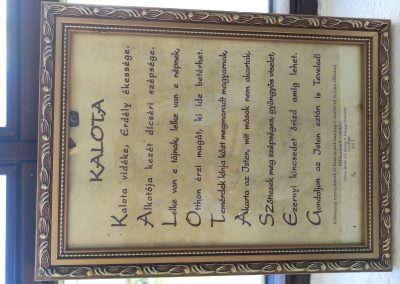 KALOTA
Kalota vidéke, Erdély ékessége.
Alkotója kezét dicséri szépsége.
Lelke van e tájnak, lelke van e népnek,
Otthon érzi magát, ki ide betérhet.
Temérdek kínja közt megmaradt magyarnak,
Akarta az Isten, mit mások nem akartak.
SZőttesek meg szépséges, gyöngyös viselet,
Ezernyi kincsedet őrizd amíg lehet.
Gondoljon az Isten eztán is Teveled!